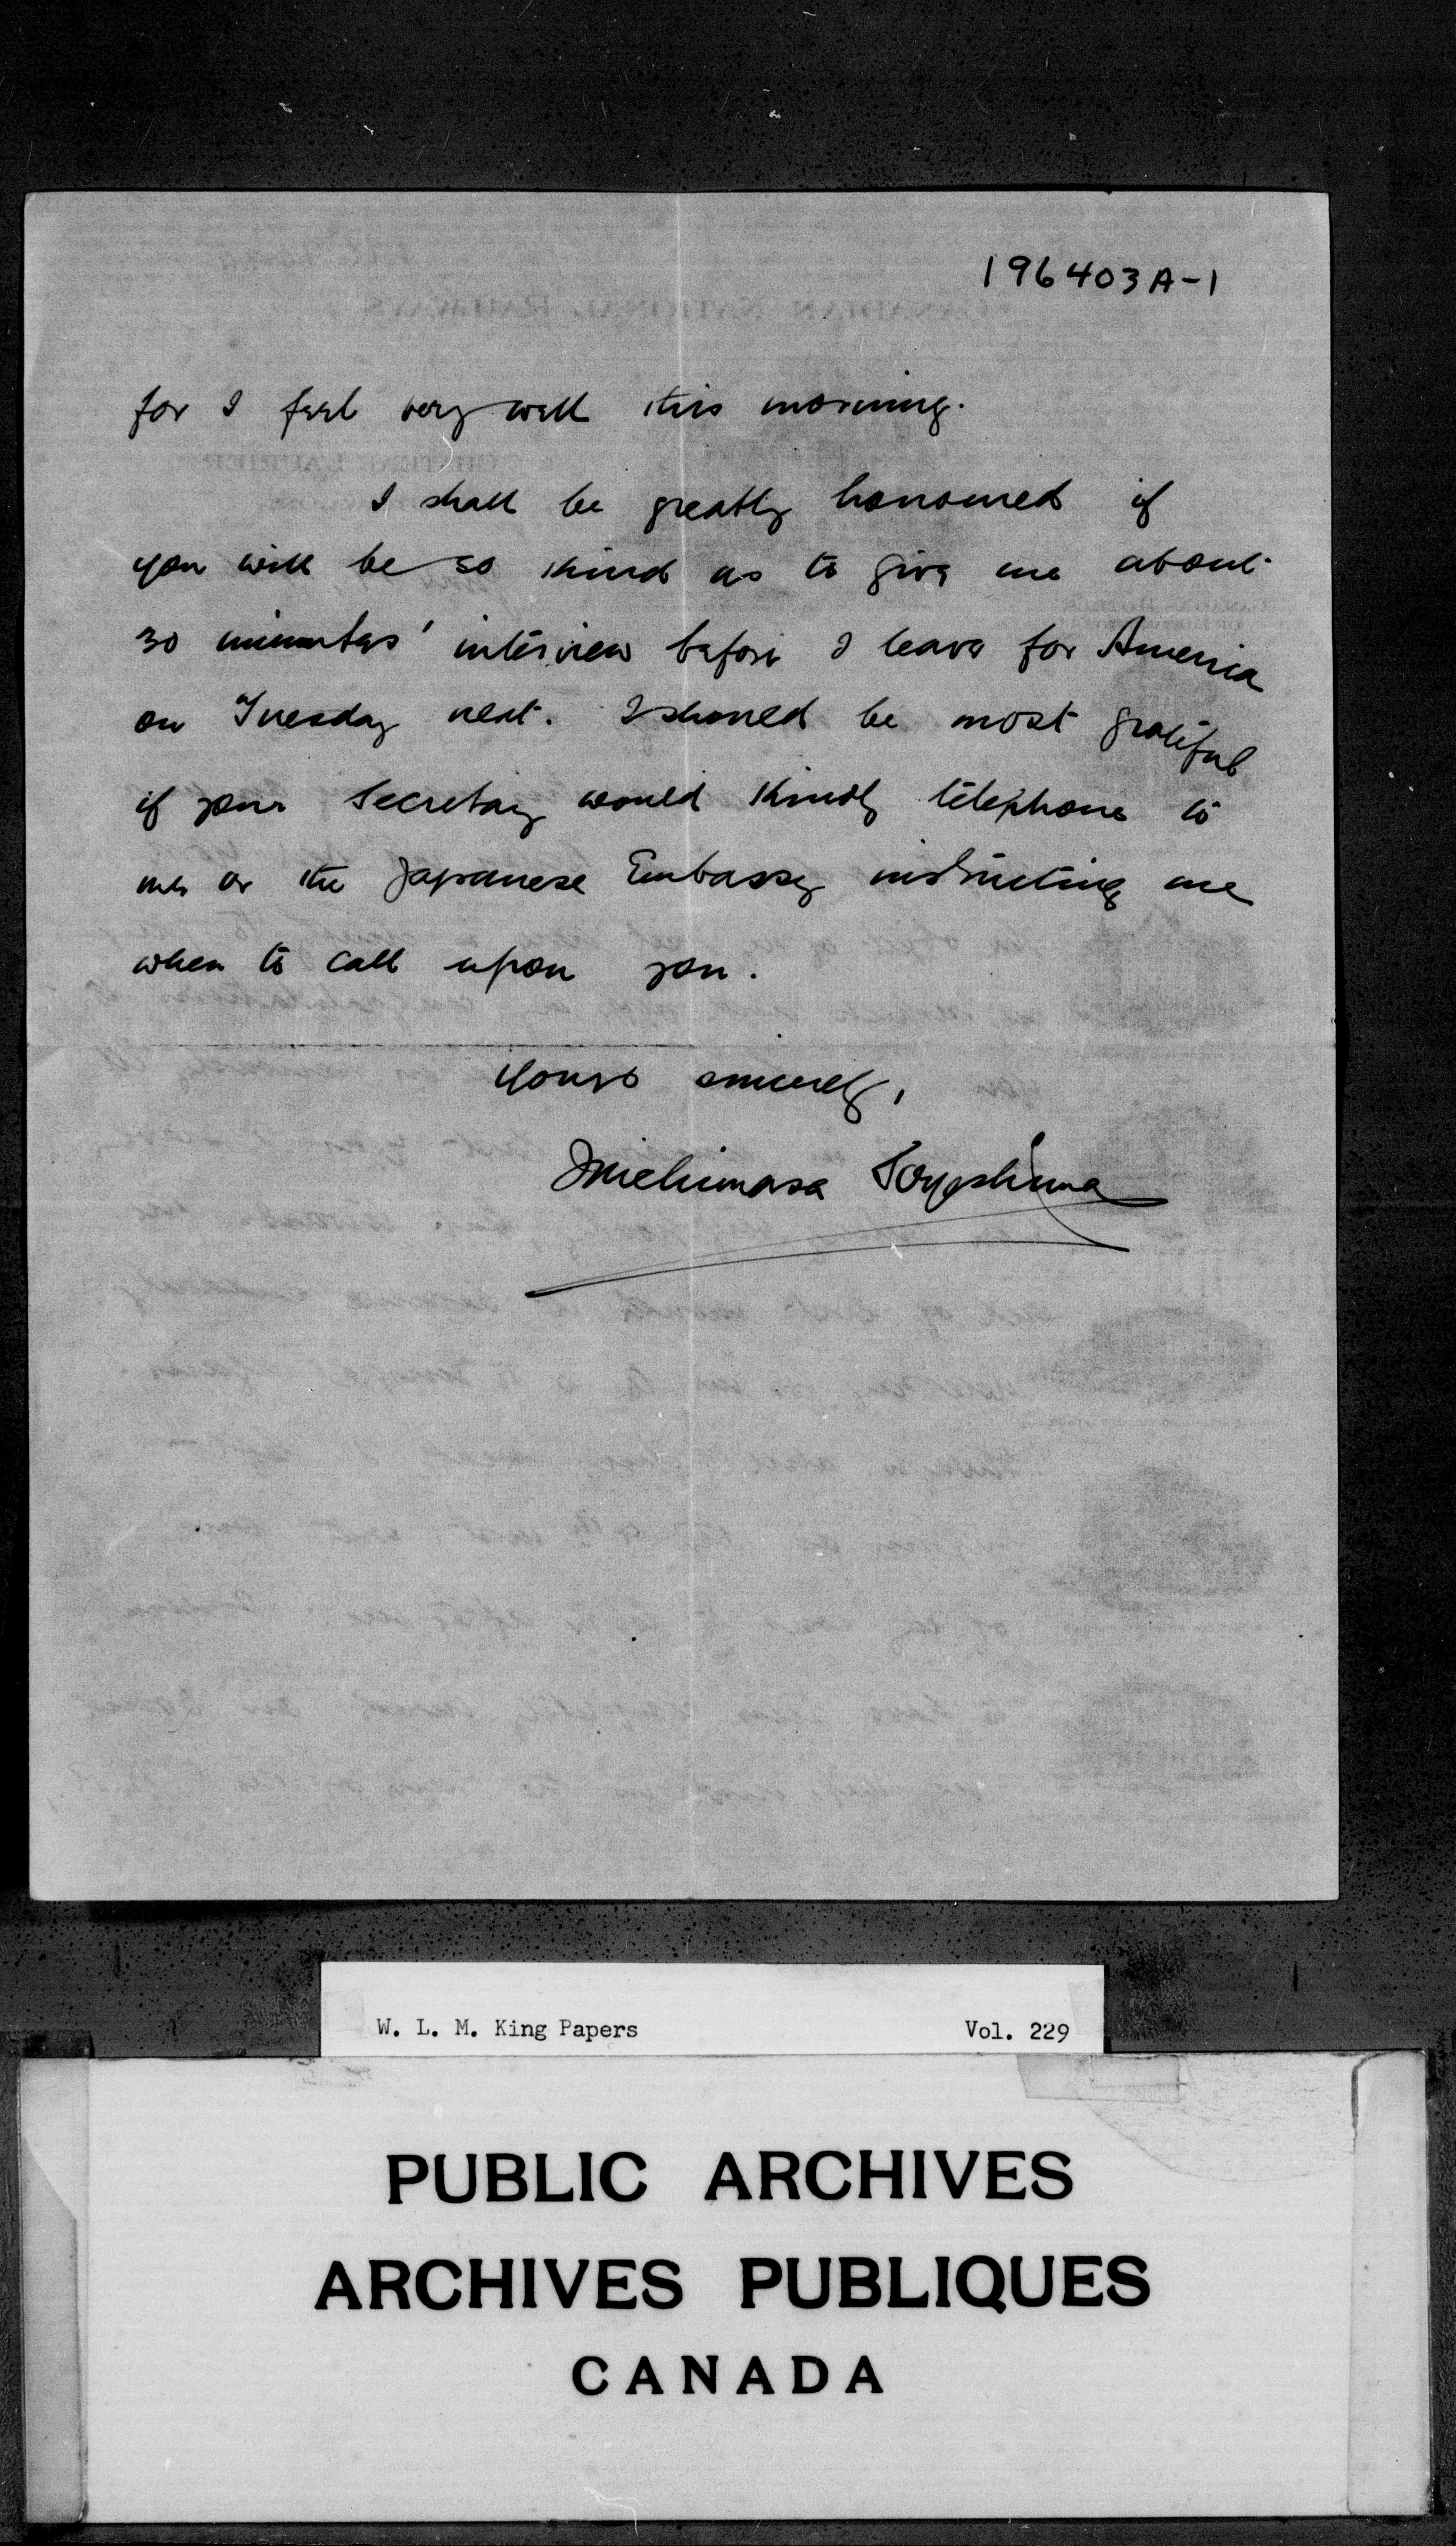 196403A-1
CANADIAN NATIONAL RAILWAYS
CHATEAU LAURIER
for I feel very well this morning.
I shall be greatly honoured if
you will be so kind as to give me about
30 minutes' interview before I leave for America
on Tuesday next. I should be most grateful
if your Secretary would kindly telephone to
me or the Japanese Embassy instructing me
when to call upon you.
Yours sincerely,
Michimasa Soyeshima
W. L. M. King Papers Vol. 229
PUBLIC ARCHIVES
ARCHIVES PUBLIQUES
CANADA